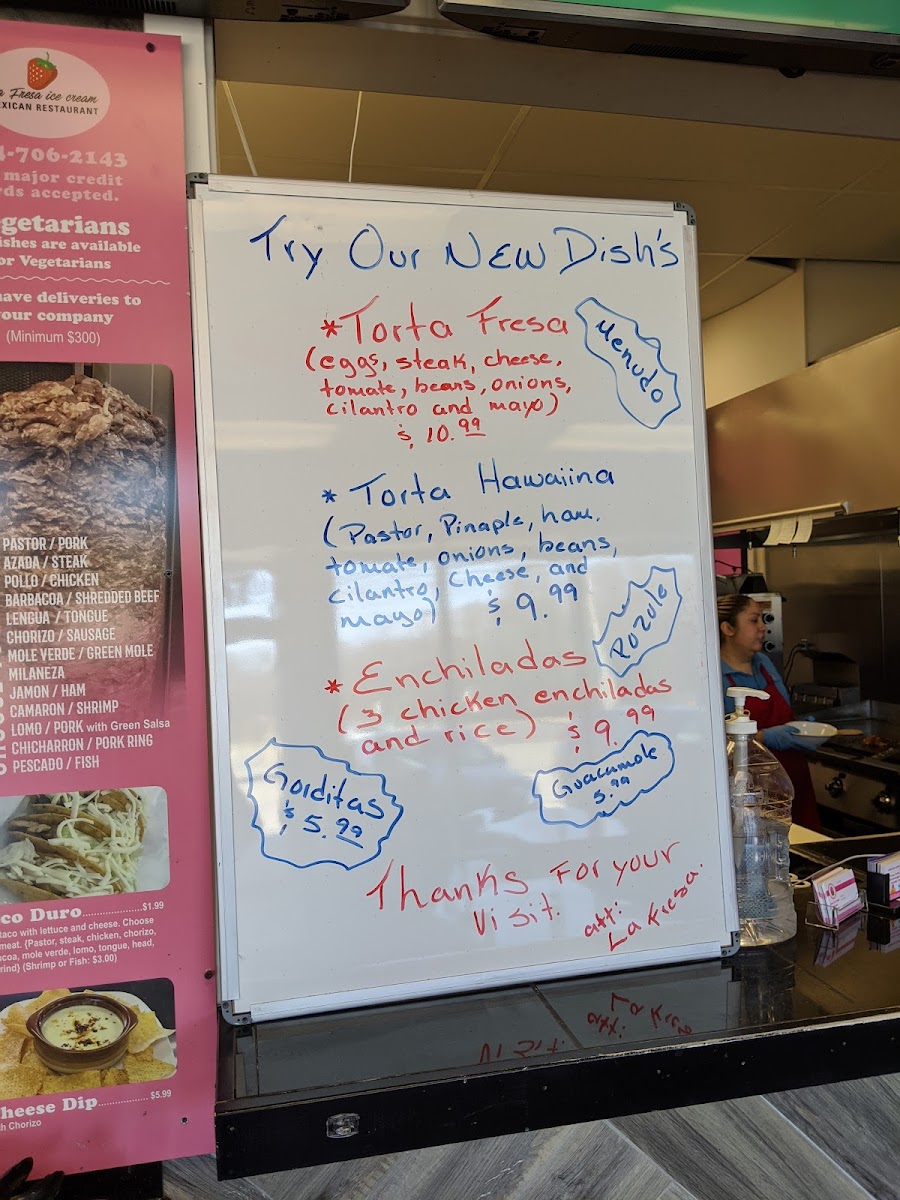 Fresa ice cream
MEXICAN RESTAURANT
4-706-2143
major credit
accepted.
are available
Vegetarians
deliveries to
your company
(Minimum $300)
PASTOR / PORK
AZADA / STEAK
POLLO / CHICKEN
BARBACOA / SHREDDED BEEF
LENGUA / TONGUE
CHORIZO / SAUSAGE
MOLE VERDE / GREEN MOLE
MILANEZA
JAMON / HAM
CAMARON / SHRIMP
LOMO / PORK with Green Salsa
CHICHARRON / PORK RING
PESCADO / FISH
co Duro....................$1.99
taco with lettuce and cheese. Choose
meat. {Pastor, steak, chicken, chorizo,
mole verde, lomo, tongue, head,
(Shrimp or Fish: $3.00)
Cheese Dip.................. $5.99
Chorizo
Try Our NEW Dish's
*Torta Fresa
(eggs, steak, cheese,
tomate, beans, onions,
cilantro and mayo)
$ 10.99
Menudo
* Torta Hawaiina
(Pastor, Pinaple, ham,
tomate, onions, beans,
cilantro, Cheese, and
mayo) $ 9.99
Pozole
* Enchiladas
(3 chicken enchiladas
and rice) $ 9.99
Gorditas
$ 5.99
Guacamole
5.99
Thanks For your
Visit.
att:
La Fresa.